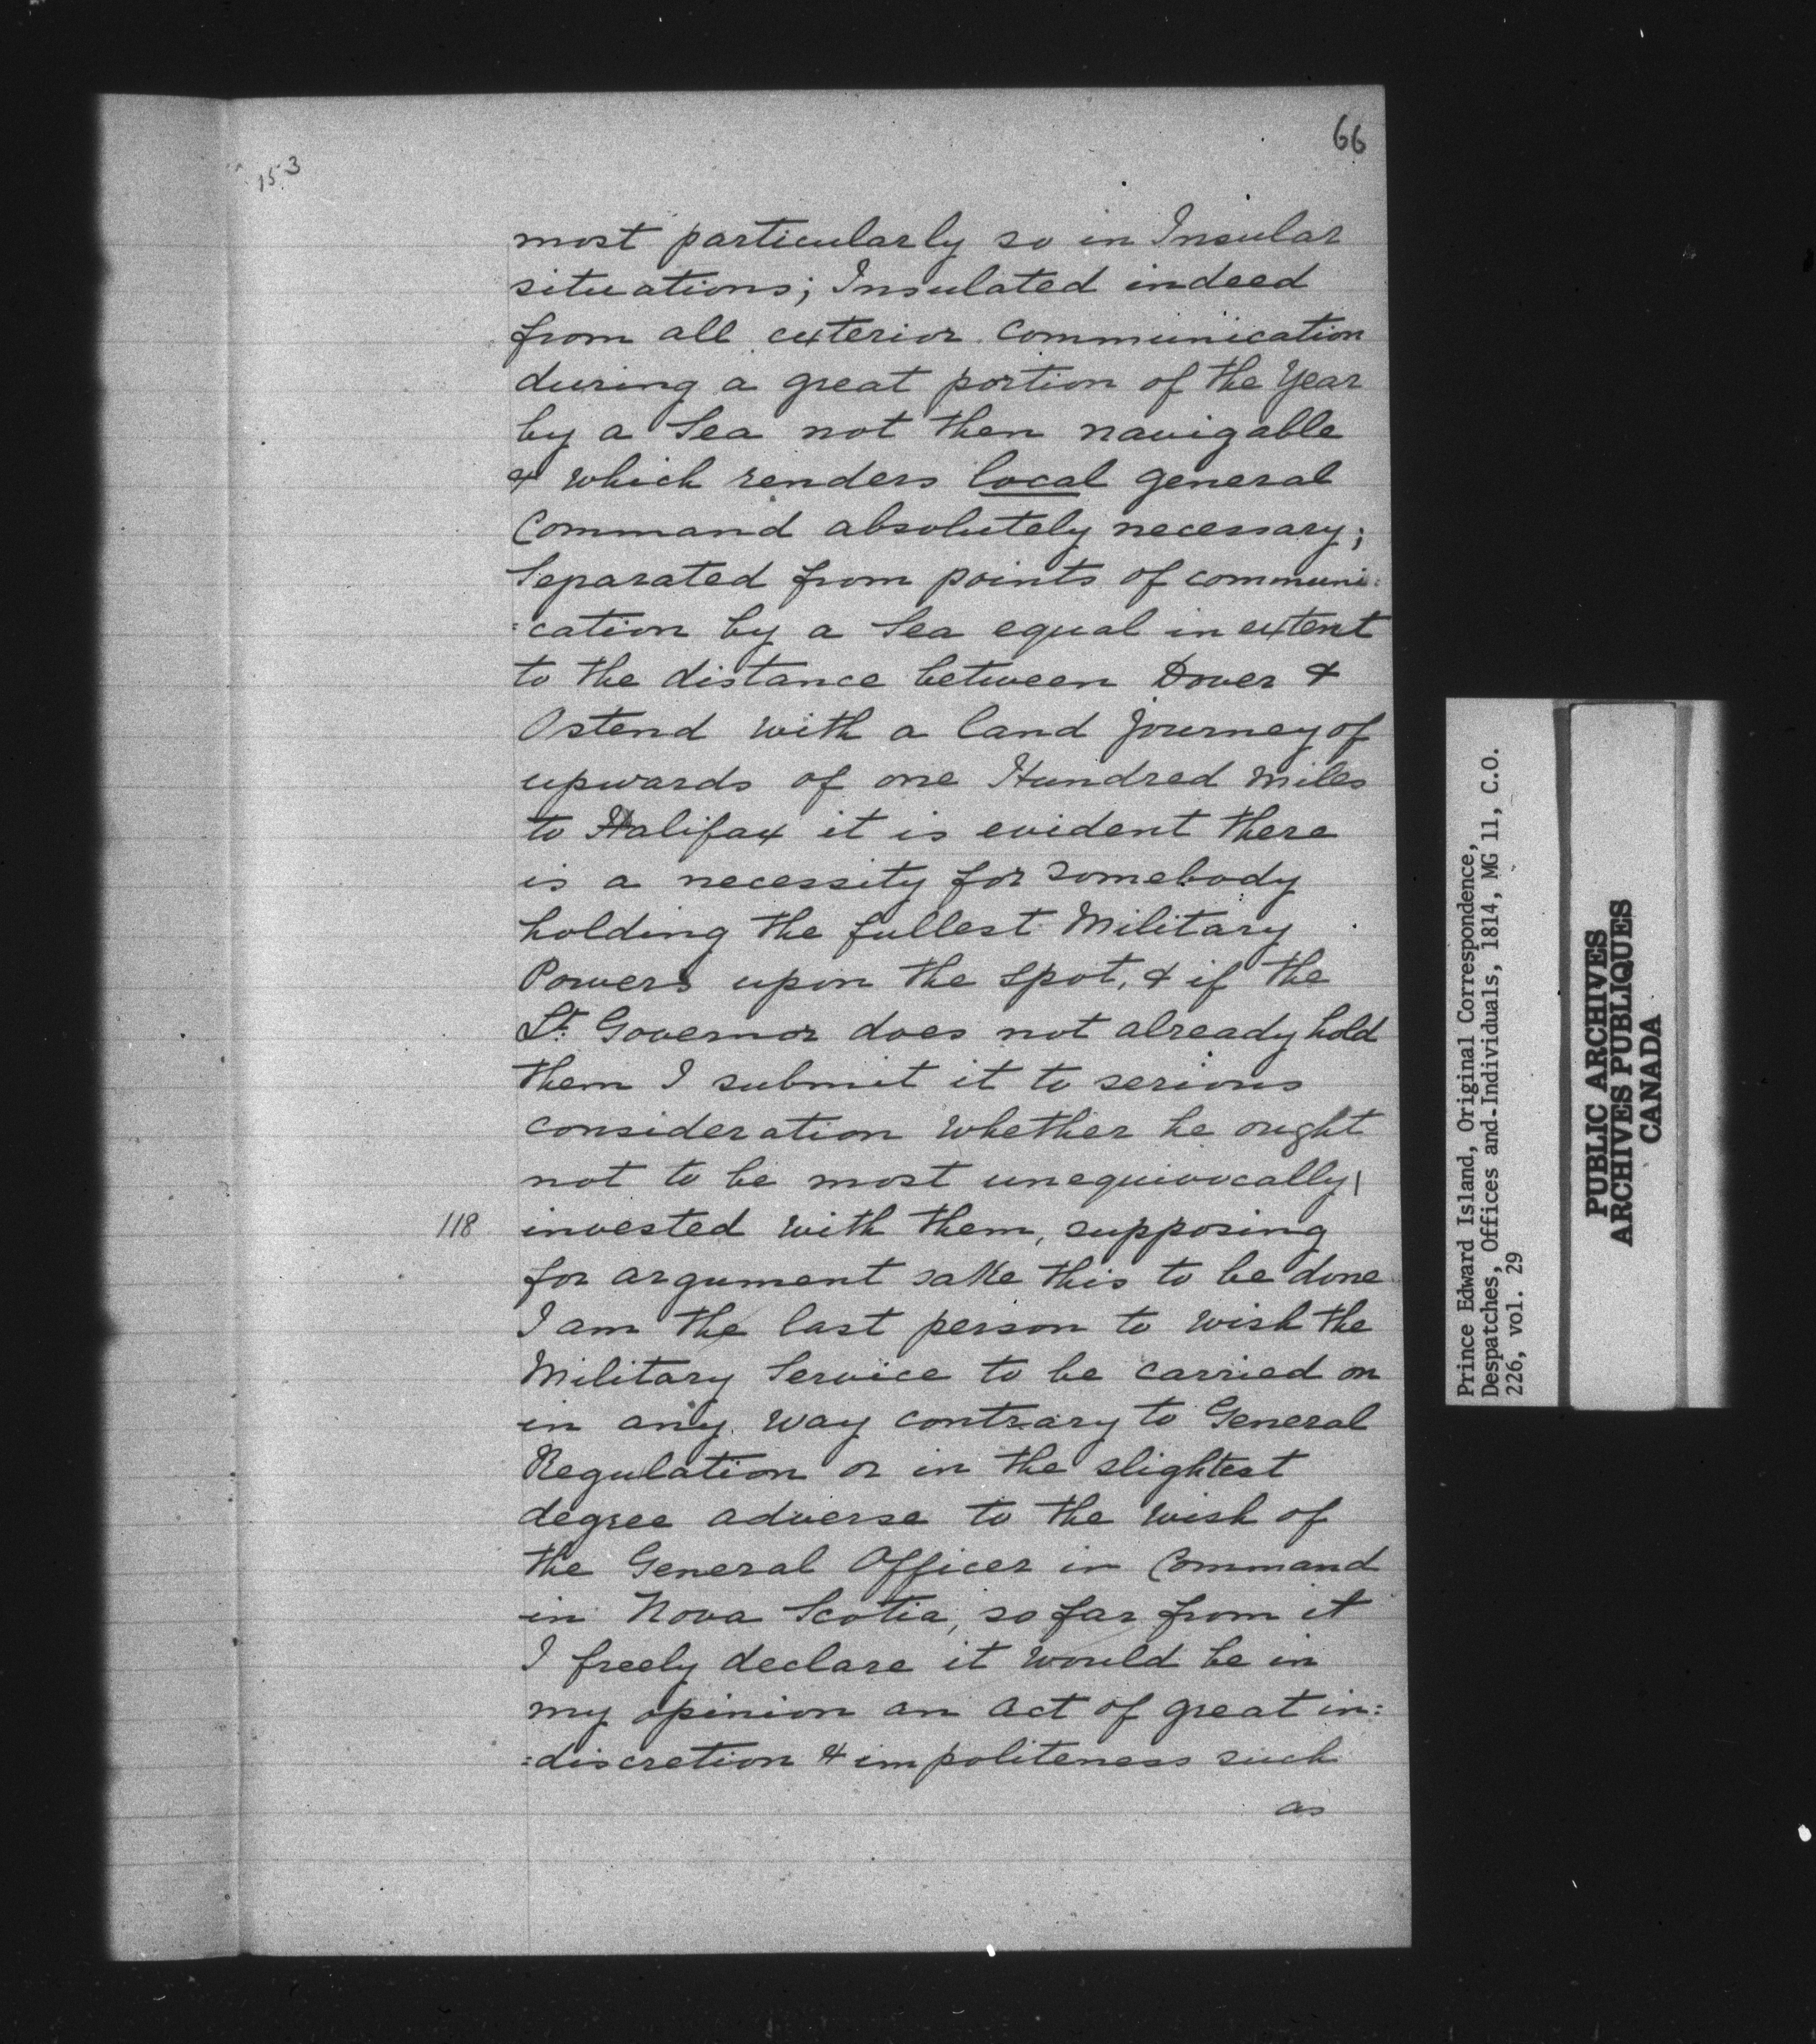 66
153
most particularly so in Insular
situations; Insulated indeed
from all exterior communication
during a great portion of the Year
by a Sea not then navigable
& which renders local general
Command absolutely necessary;
Separated from points of communi:
:cation by a Sea equal in extent
to the distance between Dover &
Ostend with a land journey of
upwards of one Hundred Miles
to Halifax it is evident there
is a necessity for somebody
holding the fullest Military
Powers upon the spot, & if the
Lt. Governor does not already hold
them I submit it to serious
consideration whether he ought
not to be most unequivocally
118 invested with them, supposing
for argument sake this to be done
I am the last person to wish the
Military Service to be carried on
in any way contrary to General
Regulation or in the slightest
degree adverse to the wish of
the General Officer in Command
in Nova Scotia, so far from it
I freely declare it would be in
my opinion an act of great in:
:discretion & impoliteness such
as
Prince Edward Island, Original Correspondence,
Despatches, Offices and Individuals, 1814, MG 11, C.O.
226, vol. 29
PUBLIC ARCHIVES
ARCHIVES PUBLIQUES
CANADA